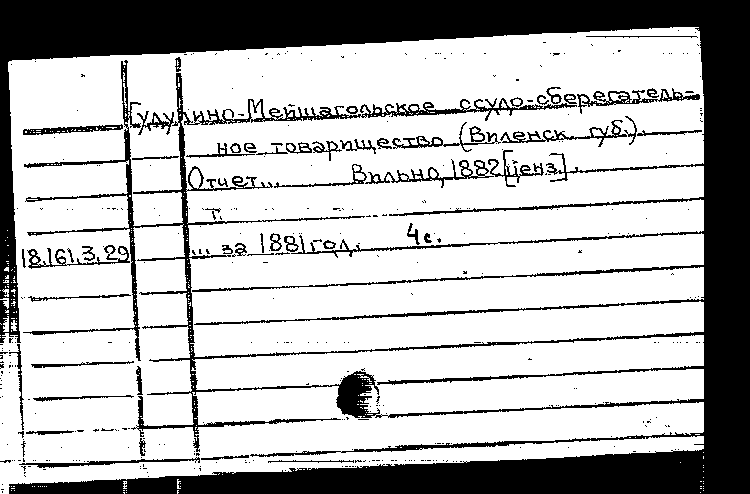 Гудулино-Мейшагольское ссудо-сберегатель-
ное товарищество (Виленск. губ.).
Отчет... Вильно, 1882 [ценз].
т.
18.161.3.29 ... за 1881 год. 4с.